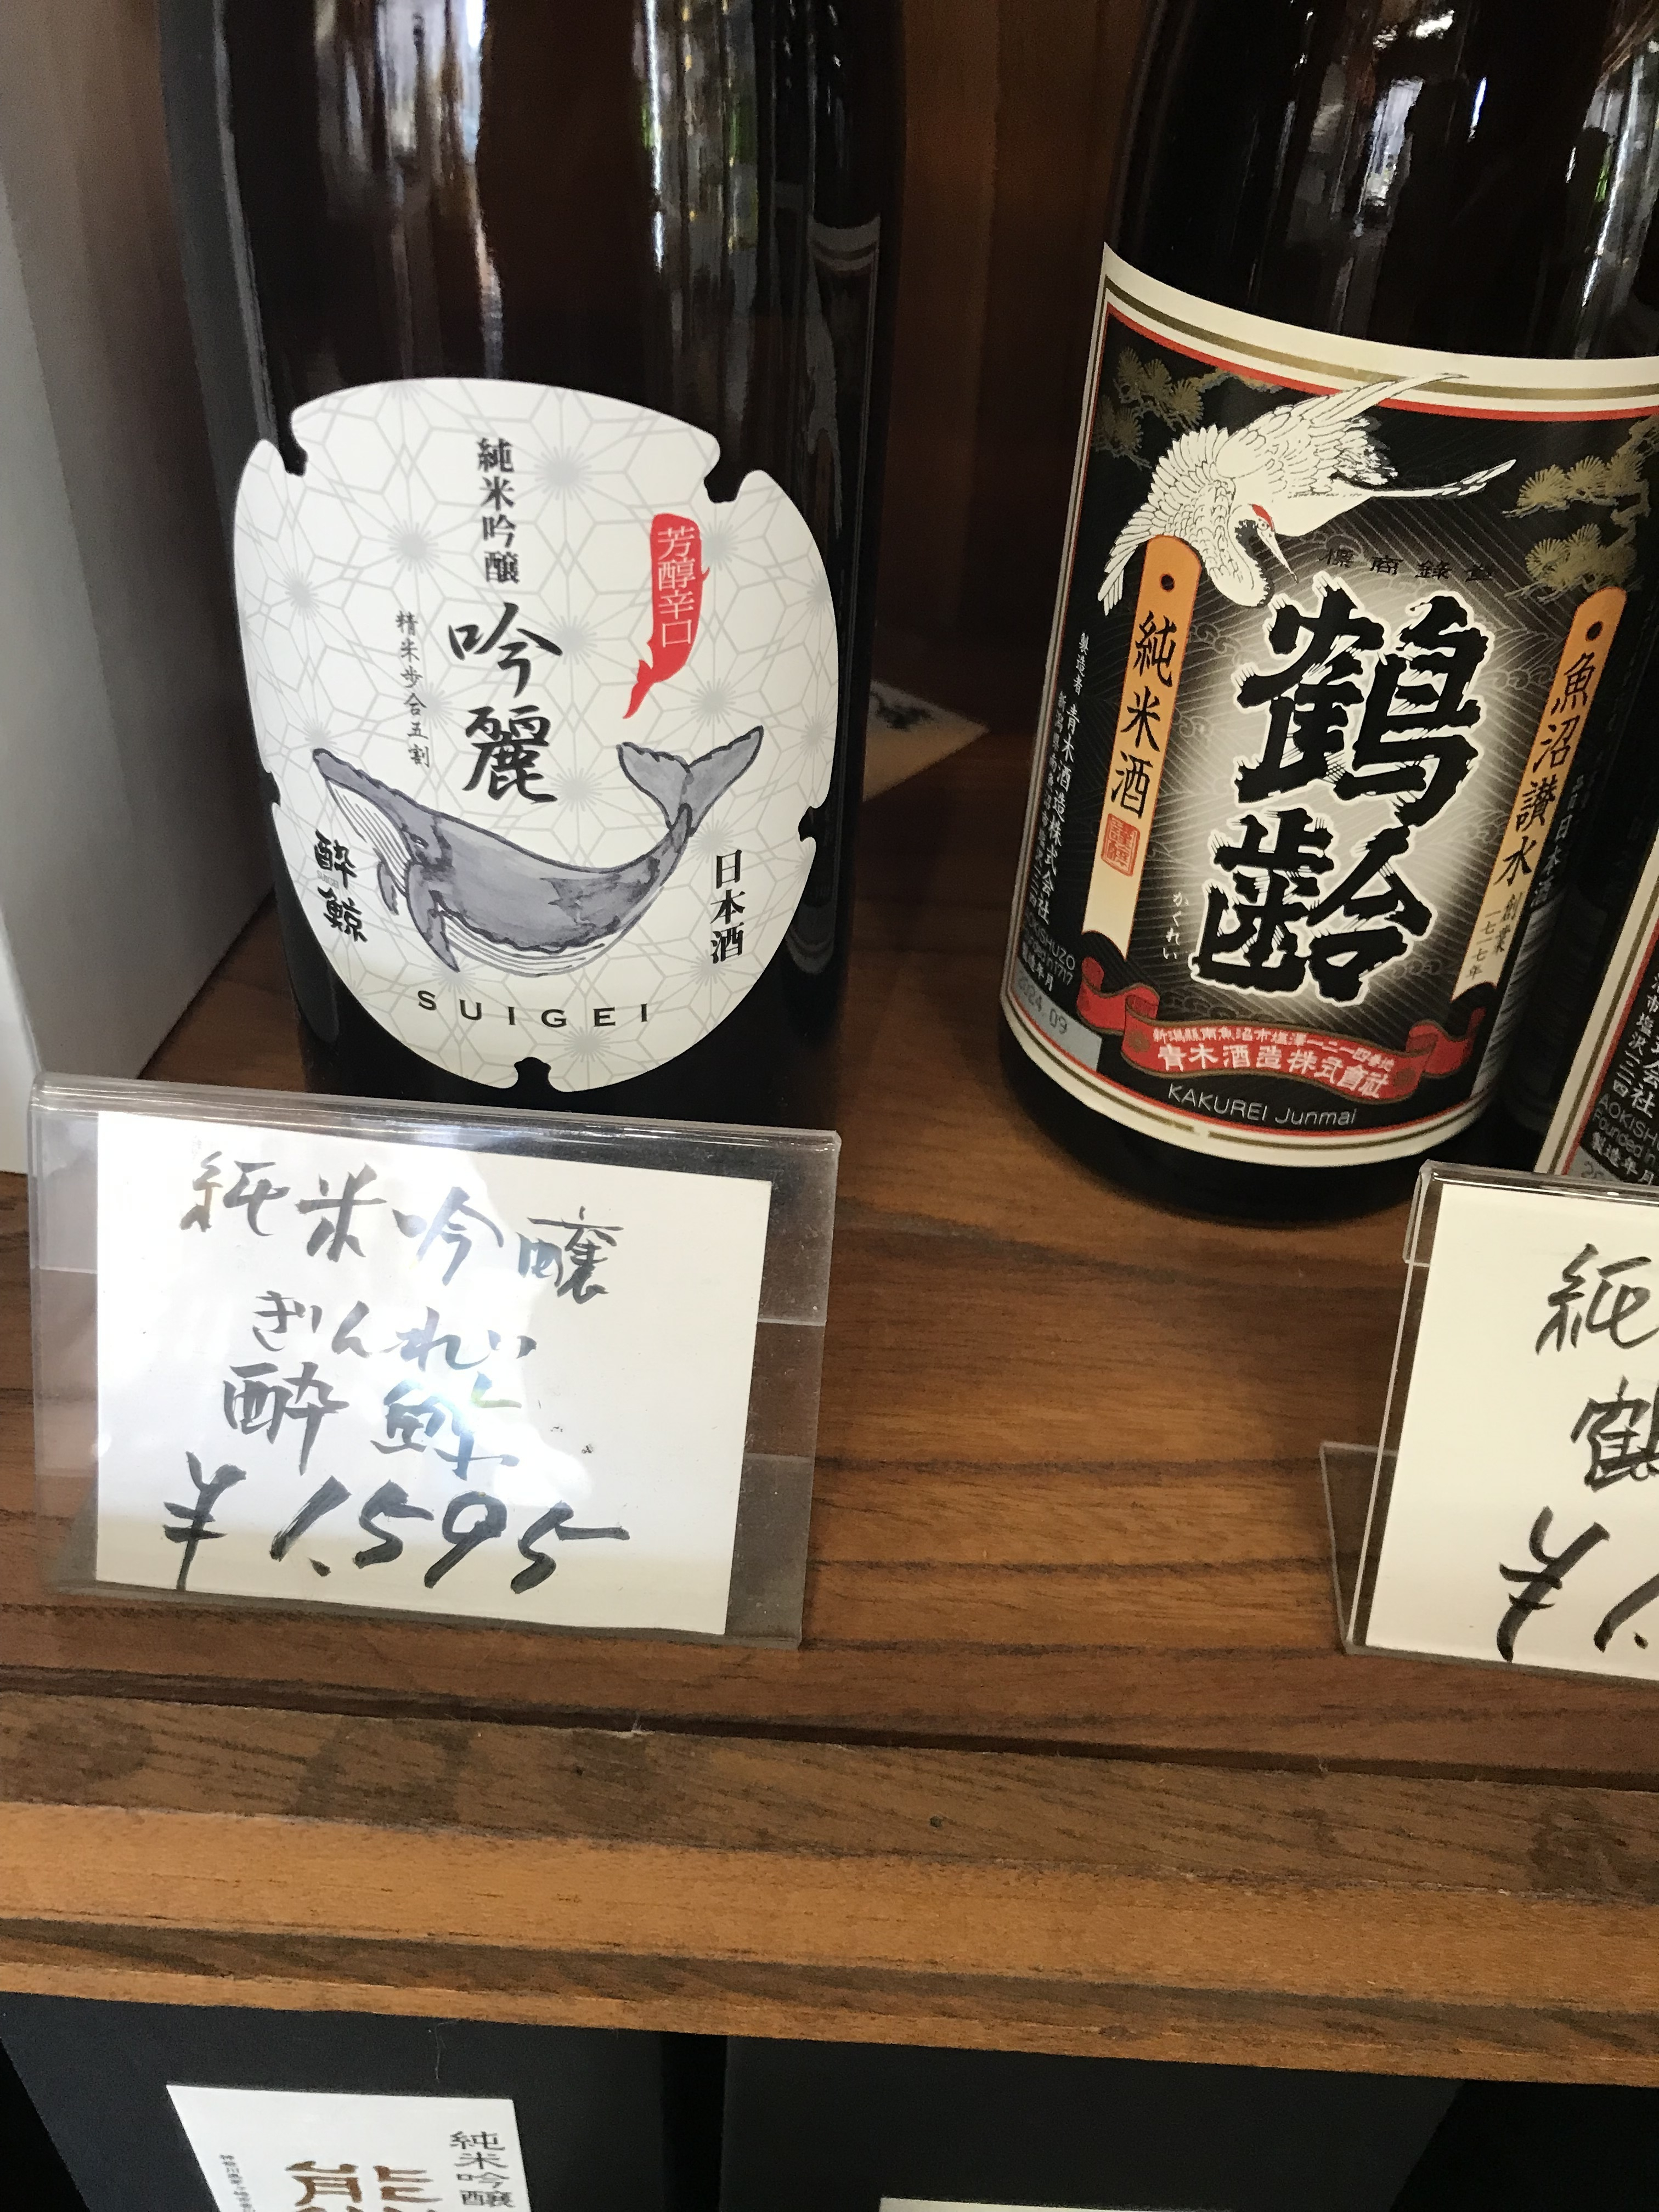 純米吟醸
芳醇辛口
吟麗
精米歩合五割
酔鯨
日本酒
SUIGEI
登録商標
鶴齢
かくれい
純米酒
魚沼讃水
創業
一七一七年
日本酒
製造者 青木酒造株式会社
製造年月
2024.09
青木酒造株式會社
KAKUREI Junmai
AOKISHU
Founded in
製造年月
純米吟醸
ぎんれい
酔鯨
¥1,595
純
鶴
¥1,
純米吟醸